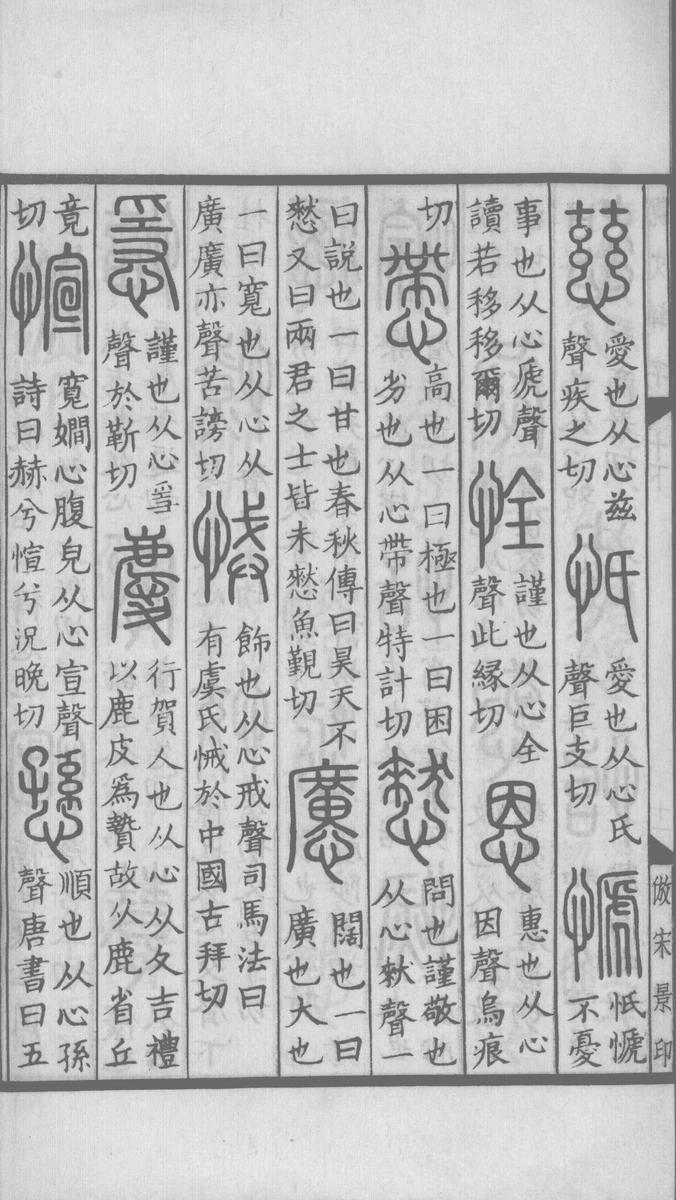 慈
愛也从心兹
聲疾之切
忯
愛也从心氏
聲巨支切
㥴
忯㥴
不憂
事也从心虒聲
讀若移移爾切
恮
謹也从心全
聲此緣切
恩
惠也从心
因聲烏痕
切
㦅
高也一曰極也一曰困
劣也从心帶聲特計切
憖
問也謹敬也
从心猌聲一
曰説也一曰甘也春秋傳曰昊天不
憖又曰兩君之士皆未憖魚覲切
懬
闊也一曰
廣也大也
一曰寬也从心从
廣廣亦聲苦謗切
悈
飾也从心戒聲司馬法曰
有虞氏悈於中國古拜切
㥯
謹也从心𤔌
聲於靳切
慶
行賀人也从心从夊吉禮
以鹿皮爲贄故从鹿省丘
竟
切
愃
寬嫺心腹皃从心宣聲
詩曰赫兮愃兮況晚切
愻
順也从心孫
聲唐書曰五
倣宋景印